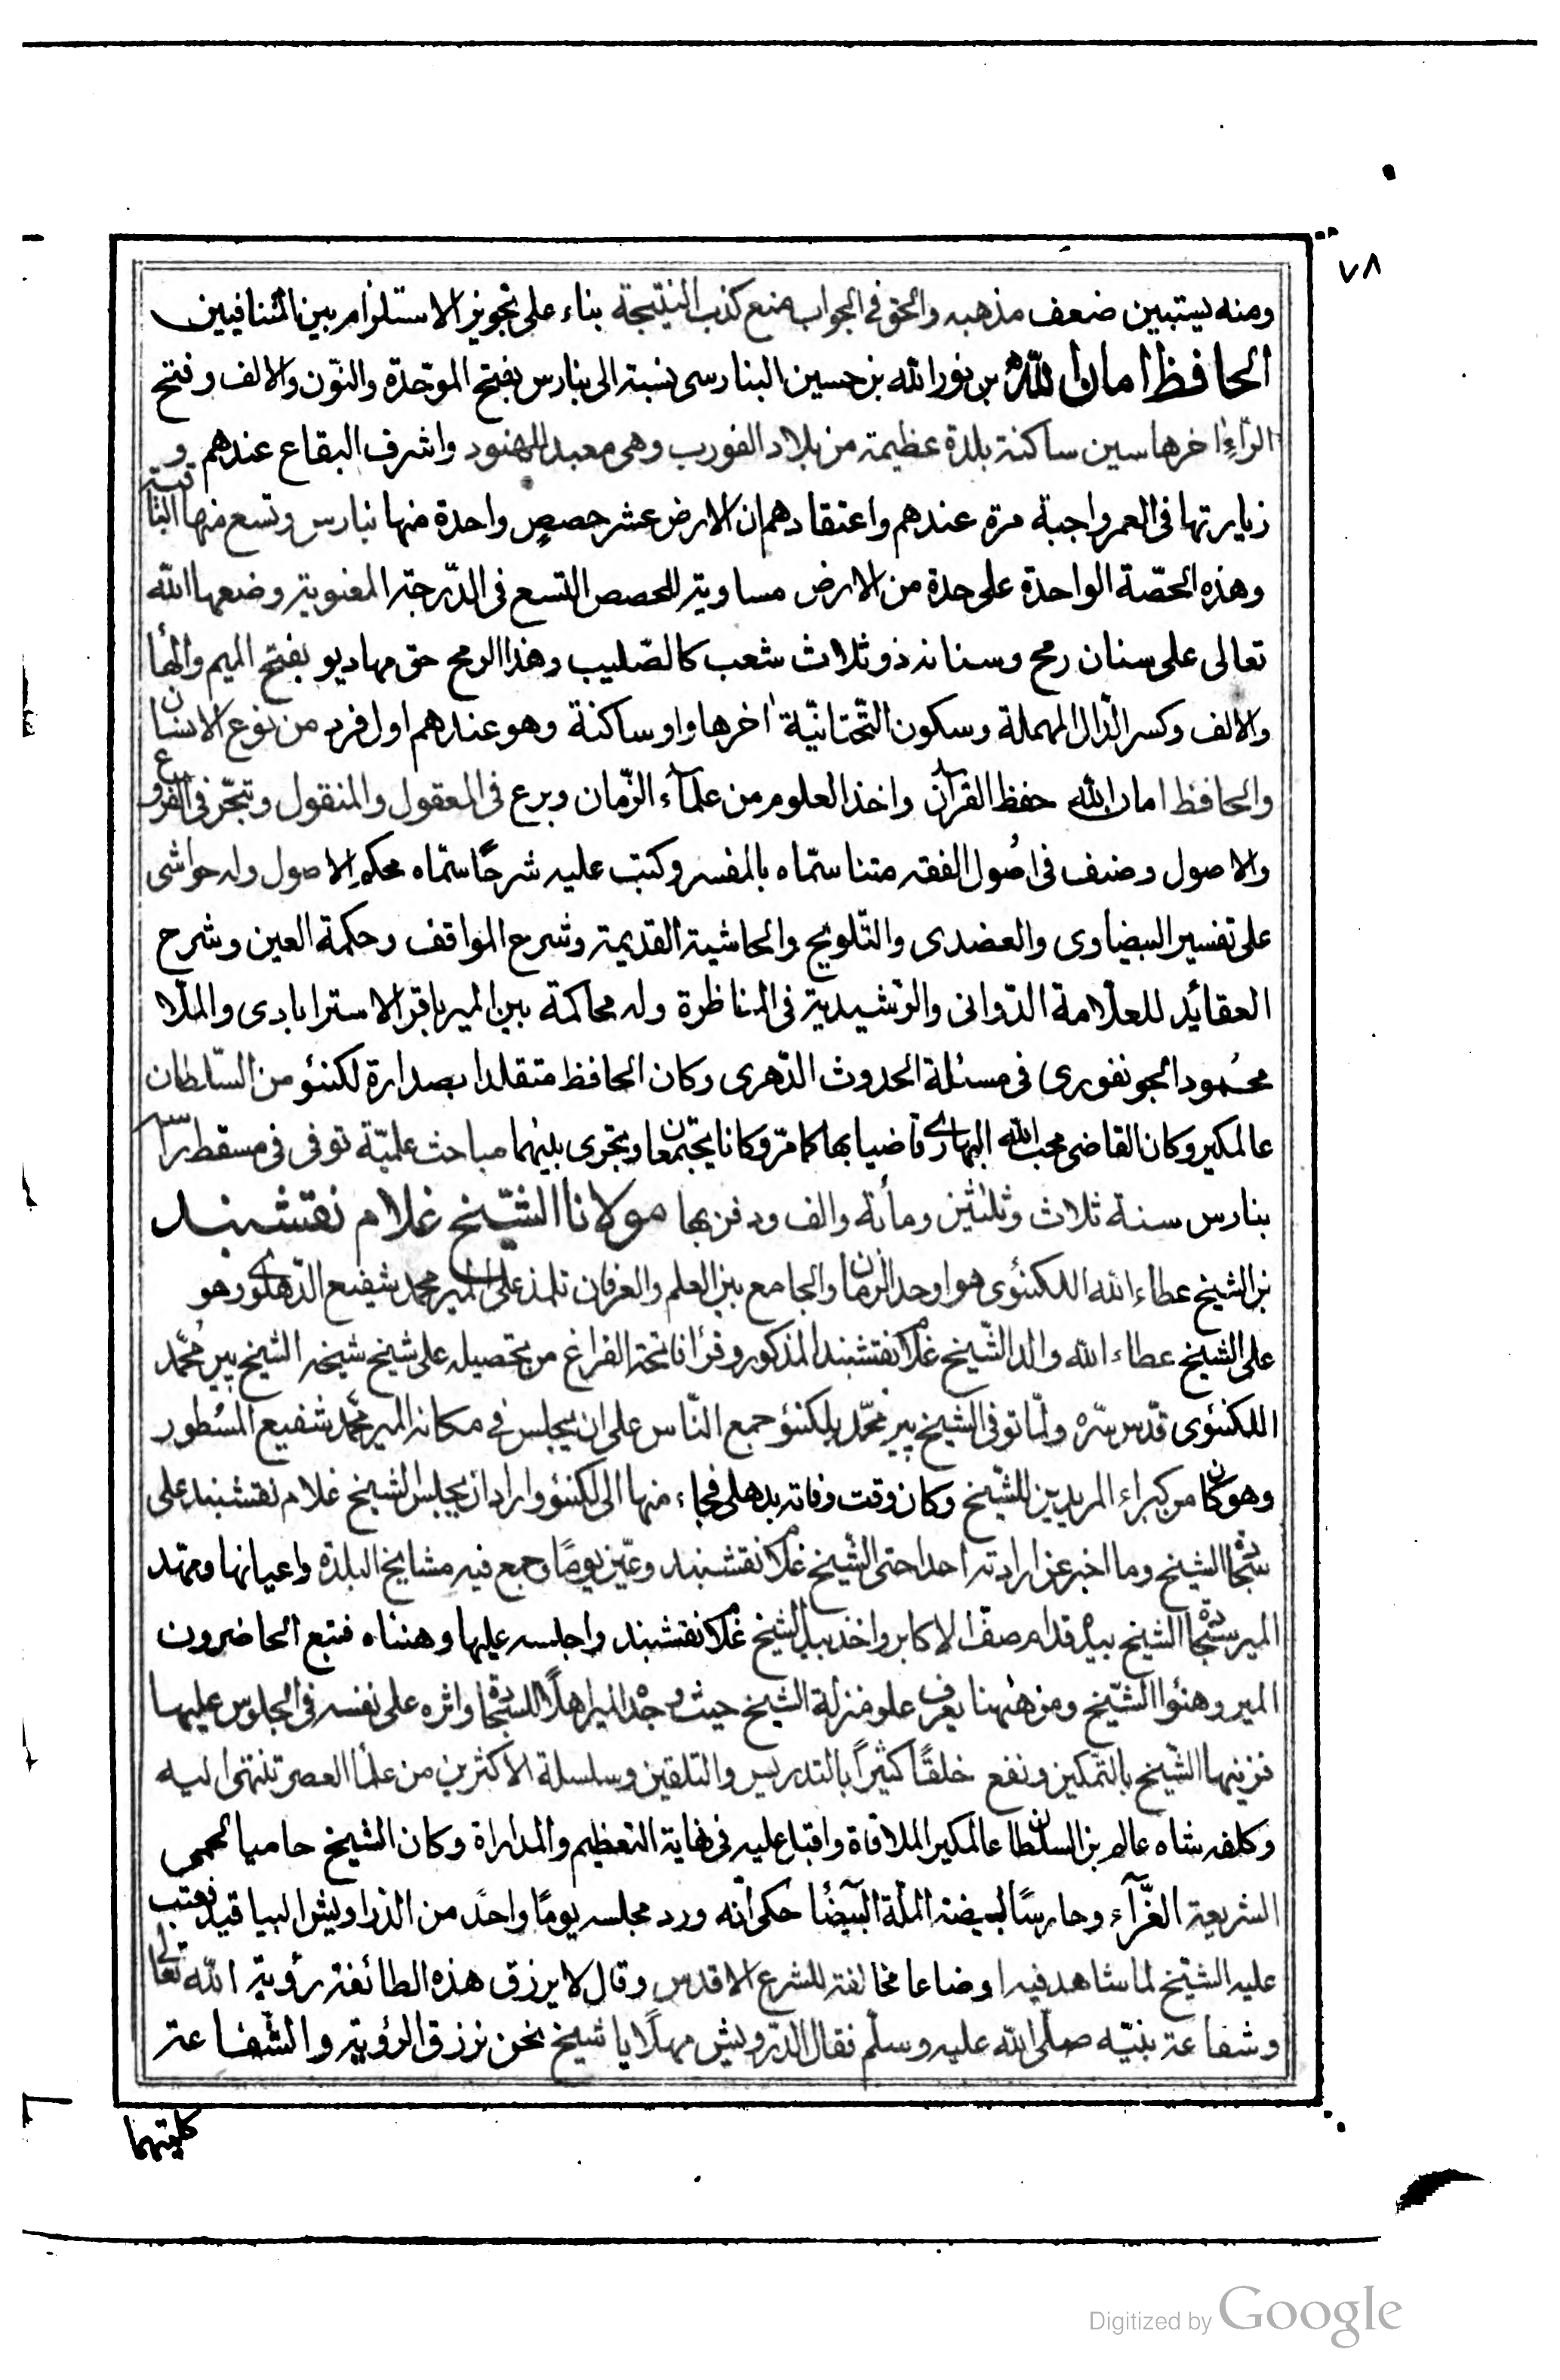 ٧٨
ومنه يستبين ضعف مذهبه والحق في الجواب منع كذب النتيجة بناء على تجويز الاستلزام بين المتنافيين
الحافظ امان الله بن نور الله بن حسين البنارسى نسبة الى بنارس بفتح الموحّدة والنّون والالف وفتح
الرّاء اخرها سين ساكنة بلدة عظيمة من بلاد الفورب وهى معبد للهنود واشرف البقاع عندهم و
زيارتها فى العمر واجبة مرة عندهم واعتقادهم ان الارض عشر حصص واحدة منها بنارس وتسع منها الباقية
وهذه الحصّة الواحدة على حدة من الارض مساوية للحصص التسع فى الدّرجة المعنوية وضعها الله
تعالى على سنان رمح وسنانه ذو ثلاث شعب كالصّليب وهذا الرمح حق مهاديو بفتح الميم والهاء
والالف وكسر الدّال المهملة وسكون التّحتانيّة اخرها واو ساكنة وهو عندهم اول فرد من نوع الانسان
والحافظ امان الله حفظ القرآن واخذ العلوم من علمآء الزّمان وبرع فى المعقول والمنقول وتبحّر فى الفروع
والاصول وصنف فى اصُول الفقه متنا سمّاه بالمفسر وكتب عليه شرحًا سمّاه محكم الاصول وله حواشى
على تفسير البيضاوى والعضدى والتّلويح والحاشية القديمة وشرح المواقف وحكمة العين وشرح
العقائد للعلامة الدّوانى والرّشيدية فى المناظرة وله محاكمة بين المير باقر الاسترابادى والملّا
محمُود الجونفورى فى مسئلة الحدوث الدّهرى وكان الحافظ متقلدا بصدارة لكنئو من السّلطان
عالمكير وكان القاضى محب الله البهارى قاضيا بها كما مرّ وكانا يجتمعان وتجرى بينهما مباحث علميّة توفى فى مسقط راسه
بنارس سنة ثلاث وثلثين ومأئة والف ودفن بها مولانا الشّيخ غلام نقشبند
بن الشيخ عطاء الله اللكنئوى هو اوحد الزمان والجامع بين العلم والعرفان تلمذ على المير محمد شفيع الدّهلوى وهو
على الشيخ عطاء الله والد الشّيخ غلام نقشبند المذكور وقرأ فاتحة الفراغ من تحصيله على شيخ شيخه الشيخ پير محُمّد
اللكنئوى قدّس سرّه ولمّا توفى الشيخ پير محمّد بلكنئو جمع النّاس على ان يجلس فى مكانه المير محمّد شفيع المسُطور
وهو كان من كبراء المريدين للشّيخ وكان وقت وفاته بدهلى فجاء منها الى لكنئو واراد ان يجلس الشيخ غلام نقشبند على
سجّادة الشيخ وما اخبر عن ارادته احدا حتى الشّيخ غلام نقشبند وعيّن يومًا وجمع فيه مشايخ البلدة واعيانها ومهّد
المير سجّادة الشيخ بيده قدام صفّ الاكابر واخذ بيد الشيخ غلام نقشبند واجلسه عليها وهنّاه فتبع الحاضرون
المير وهنئوا الشّيخ ومن ههنا يعرف علو منزلة الشيخ حيث وجده المير اهلًا للسجّادة واثره على نفسه فى الجلوس عليها
فزينها الشّيخ بالتّمكين ونفع خلقًا كثيرًا بالتدريس والتلقين وسلسلة الاكثرين من علما العصر تنتهى اليه
وكلفه شاه عالم بن السلطان عالمكير الملاقاة واقبل عليه فى نهاية التعظيم والمداراة وكان الشيخ حاميا لحمى
الشريعة الغرّآء وحارسًا لبيضة الملة البيضآء حكى انّه ورد مجلسه يومًا واحدٌ من الدّراويش البياقيد فعتب
عليه الشّيخ لما شاهد فيه اوضاعا مخالفة للشرع الاقدس وقال لا يرزق هذه الطائفة رؤية الله تعالى
وشفاعة بنيّه صلى الله عليه وسلّم فقال الدّرويش مهلًا يا شيخ نحن نرزق الرؤية والشّفاعة
كليتهما
Digitized by Google